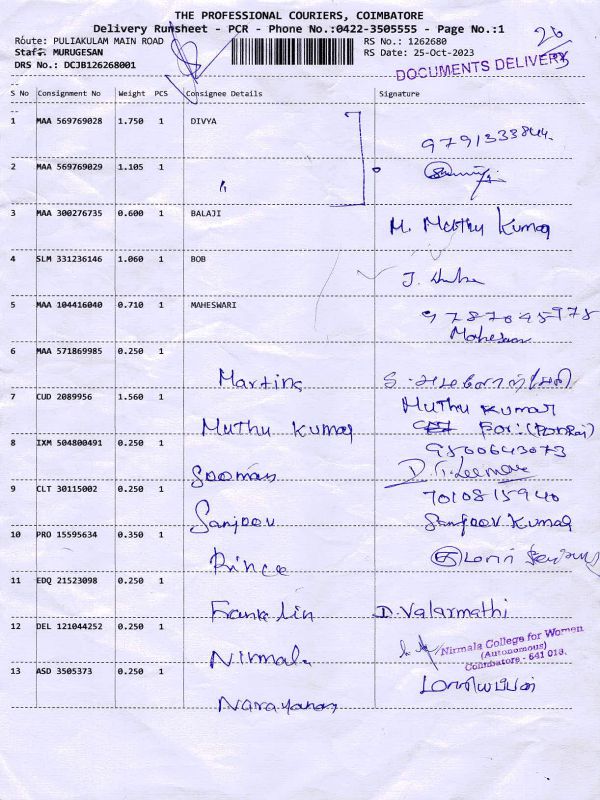 THE PROFESSIONAL COURIERS, COIMBATORE
Delivery Runsheet - PCR - Phone No.:0422-3505555 - Page No.:1
Route: PULIAKULAM MAIN ROAD RS No.: 1262680
Staff: MURUGESAN RS Date: 25-Oct-2023
DRS No.: DCJB126268001
26
DOCUMENTS DELIVERY
S No Consignment No Weight PCS Consignee Details Signature
1 MAA 569769028 1.750 1 DIVYA
9791333844.
2 MAA 569769029 1.105 1
3 MAA 300276735 0.600 1 BALAJI
M. Muthu Kumar
4 SLM 331236146 1.060 1 BOB
5 MAA 104416040 0.710 1 MAHESWARI
9787045978
6 MAA 571869985 0.250 1
Martina
7 CUD 2089956 1.560 1
Muthu Kumar
Muthu Kumar
For:
8 IXM 504800491 0.250 1
9500643073
Sooman
9 CLT 30115002 0.250 1
7010815940
Sanjeev Sanjeev Kumar
10 PRO 15595634 0.350 1
Prince
11 EDQ 21523098 0.250 1
Franklin D. Valarmathi
12 DEL 121044252 0.250 1
Nirmala
Nirmala College for Women
(Autonomous)
Coimbatore - 641 018.
13 ASD 3505373 0.250 1
Narayanan